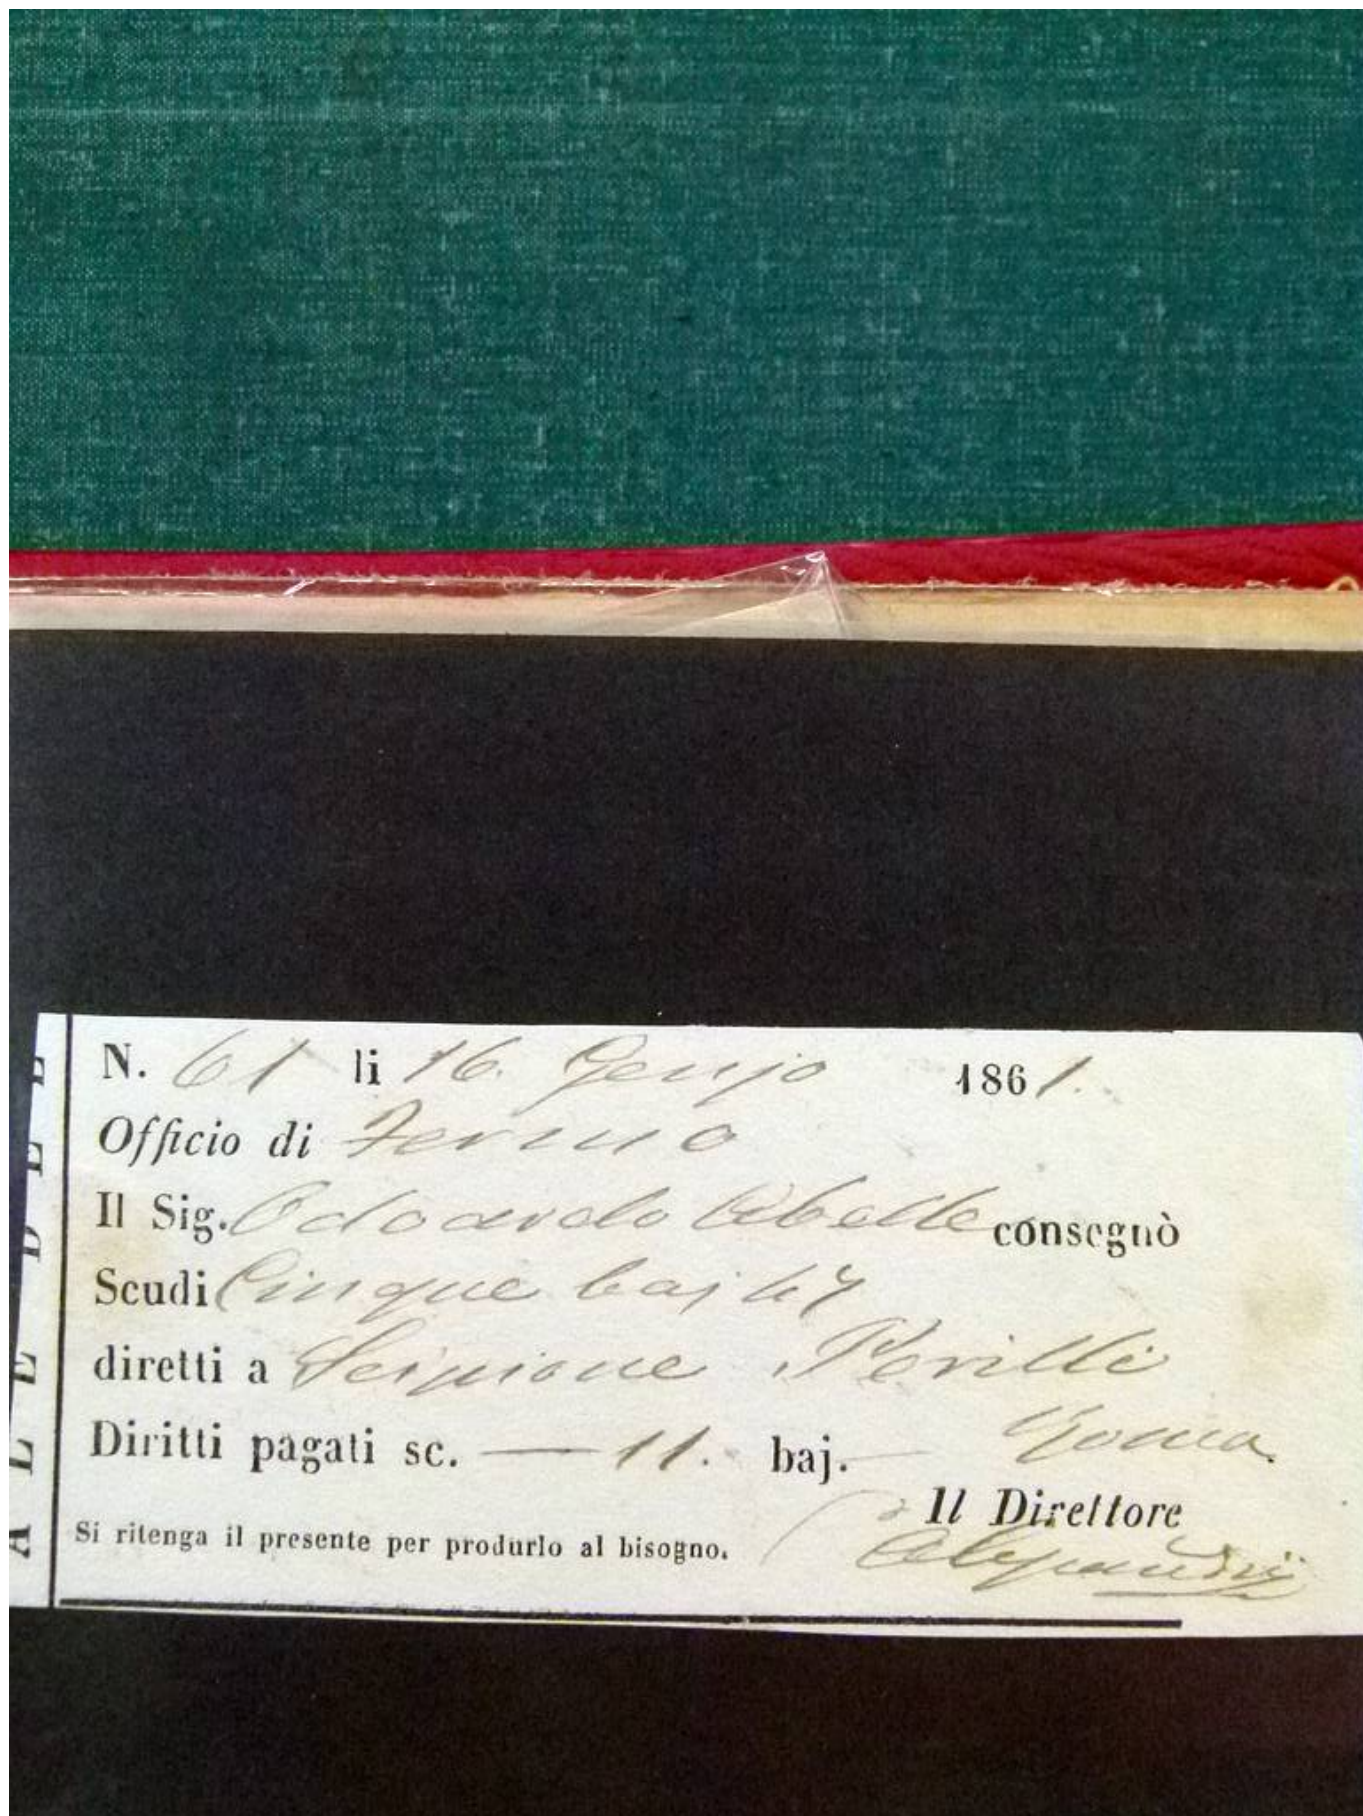 N. 61 li 16. Genjo 1861.
Officio di Fermo
Il Sig. Odoardo Abelle consegnò
Scudi Cinque baj 47
diretti a Scipione Perilli
Roma
Diritti pagati sc. — 11. baj.
Il Direttore
Si ritenga il presente per produrlo al bisogno.